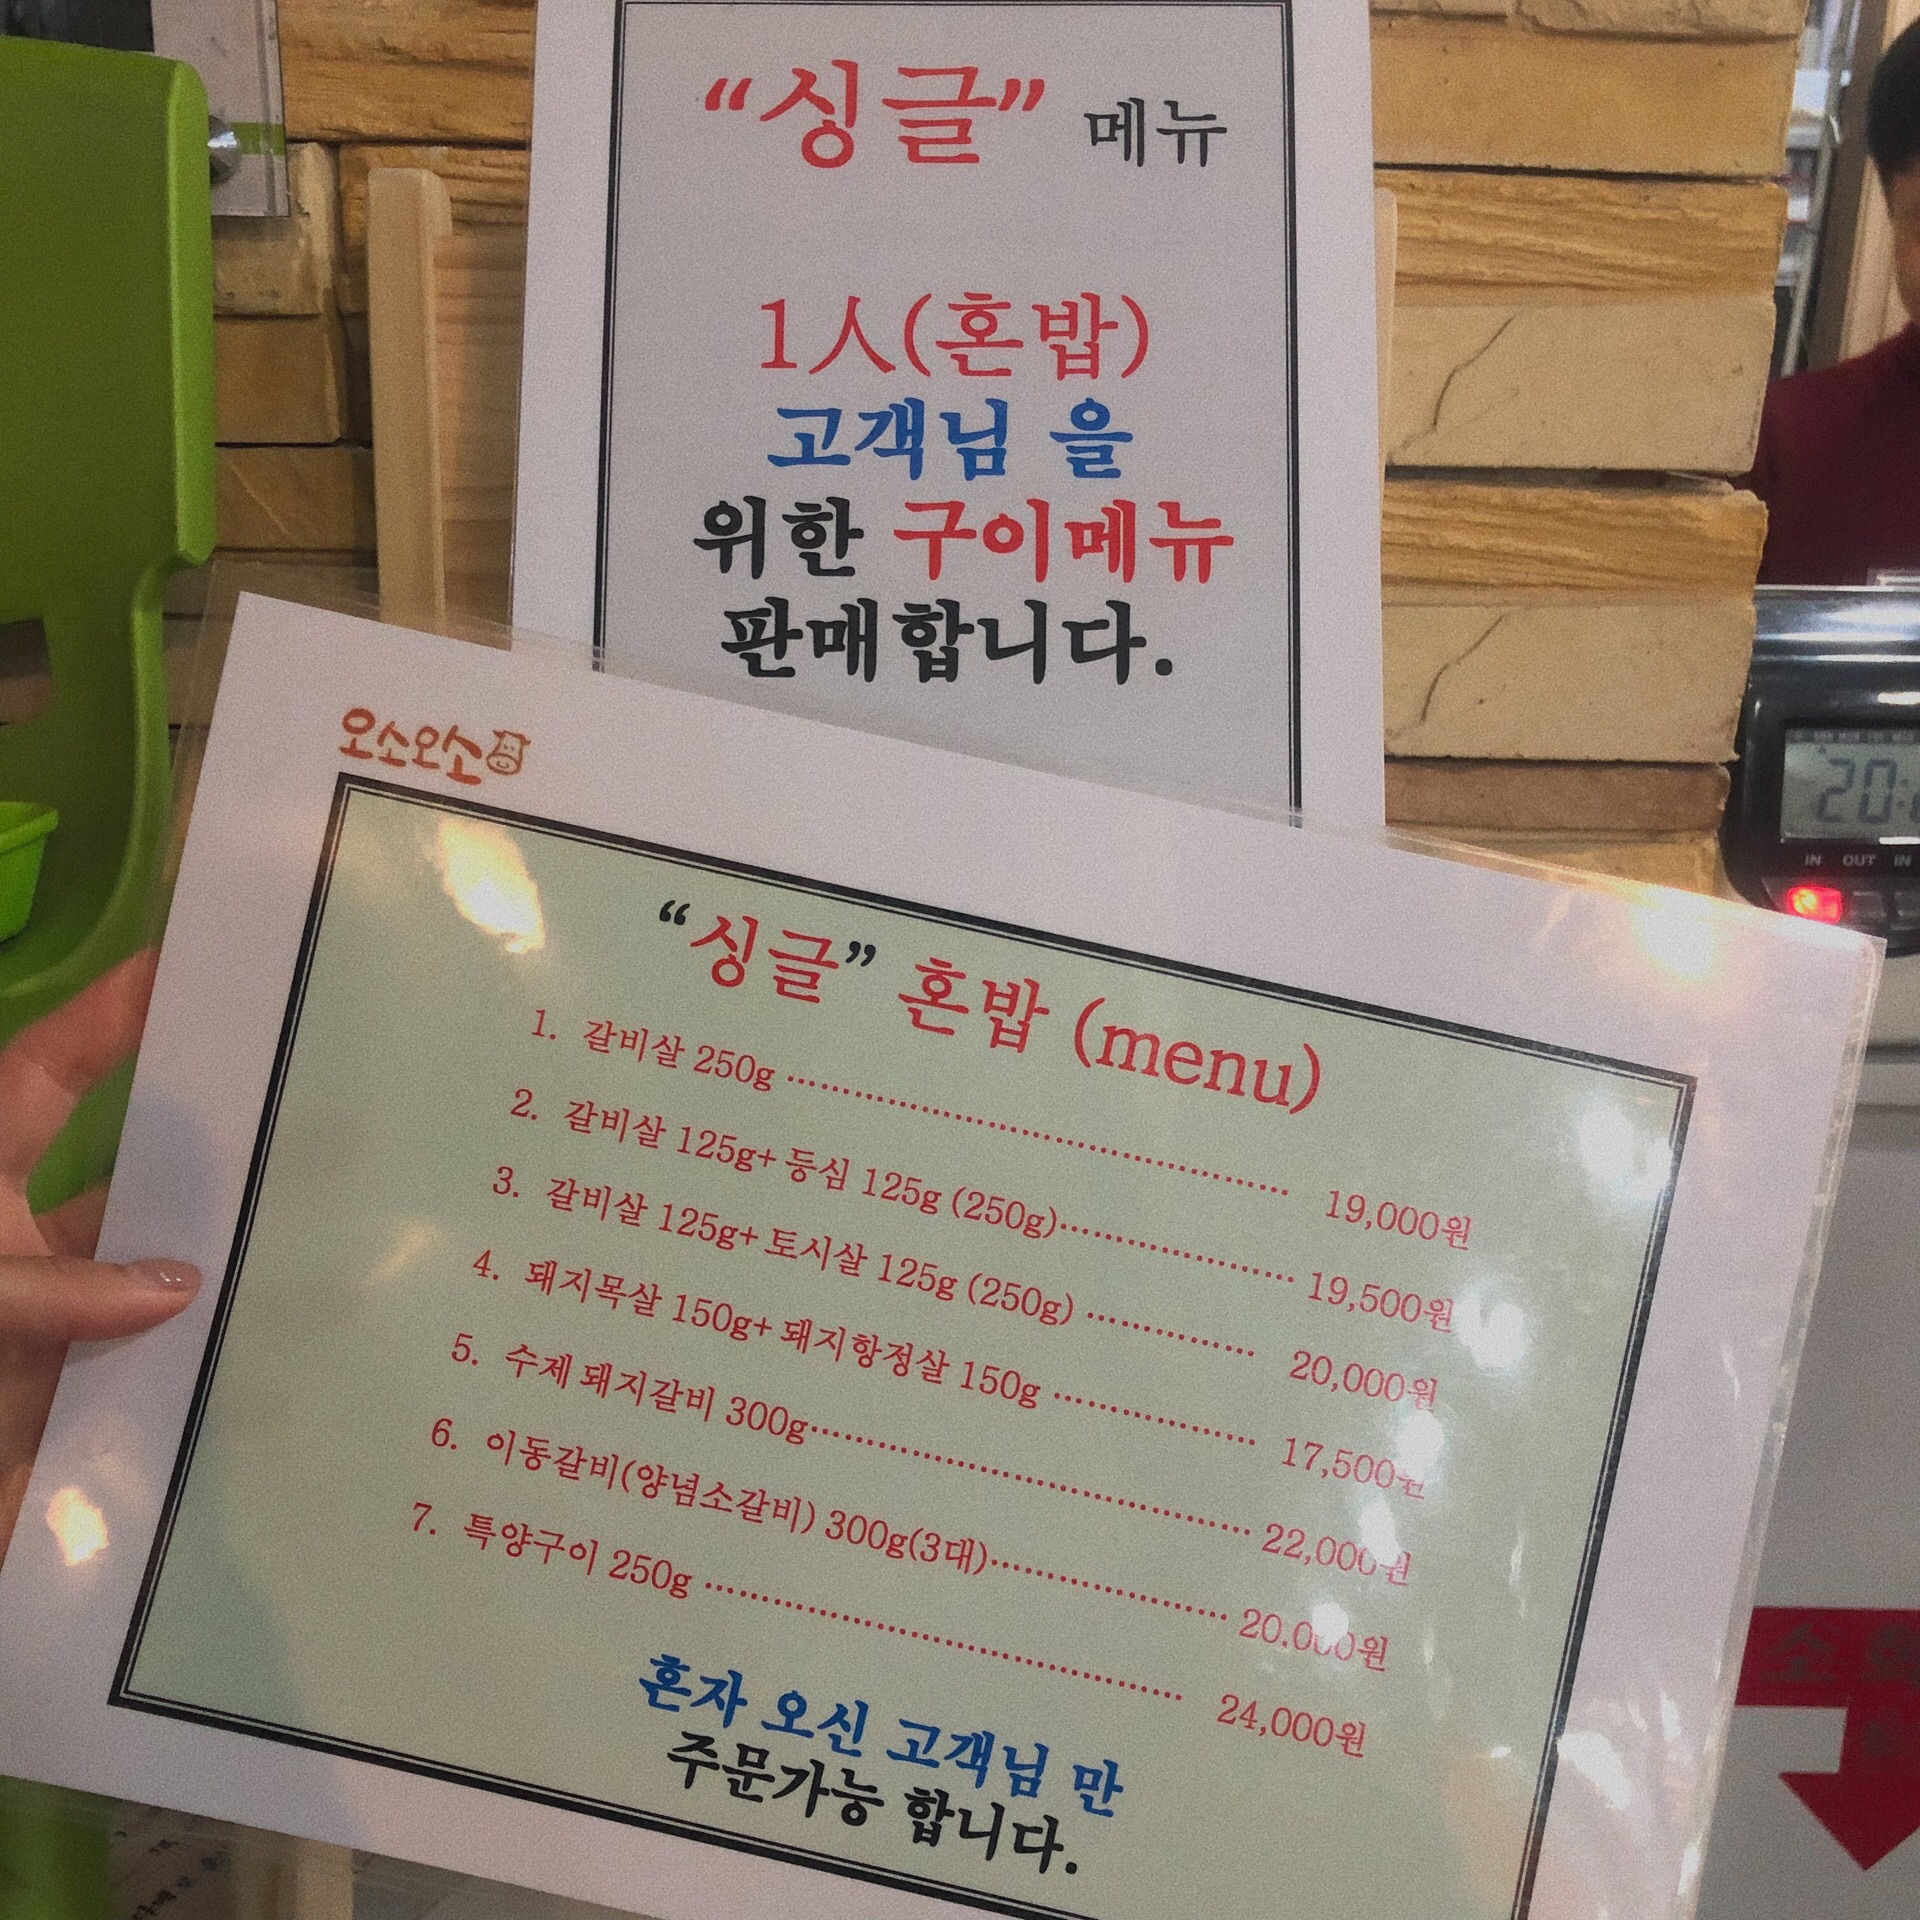 “싱글” 메뉴
1人(혼밥)
고객님 을
위한 구이메뉴
판매합니다.
오소오소
“싱글” 혼밥 (menu)
1. 갈비살 250g ········ 19,000원
2. 갈비살 125g+ 등심 125g (250g)········ 19,500원
3. 갈비살 125g+ 토시살 125g (250g) ········ 20,000원
4. 돼지목살 150g+ 돼지항정살 150g ········ 17,500원
5. 수제 돼지갈비 300g········ 22,000원
6. 이동갈비(양념소갈비) 300g(3대)········ 20,000원
7. 특양구이 250g ········ 24,000원
혼자 오신 고객님 만
주문가능 합니다.
20:
IN OUT IN